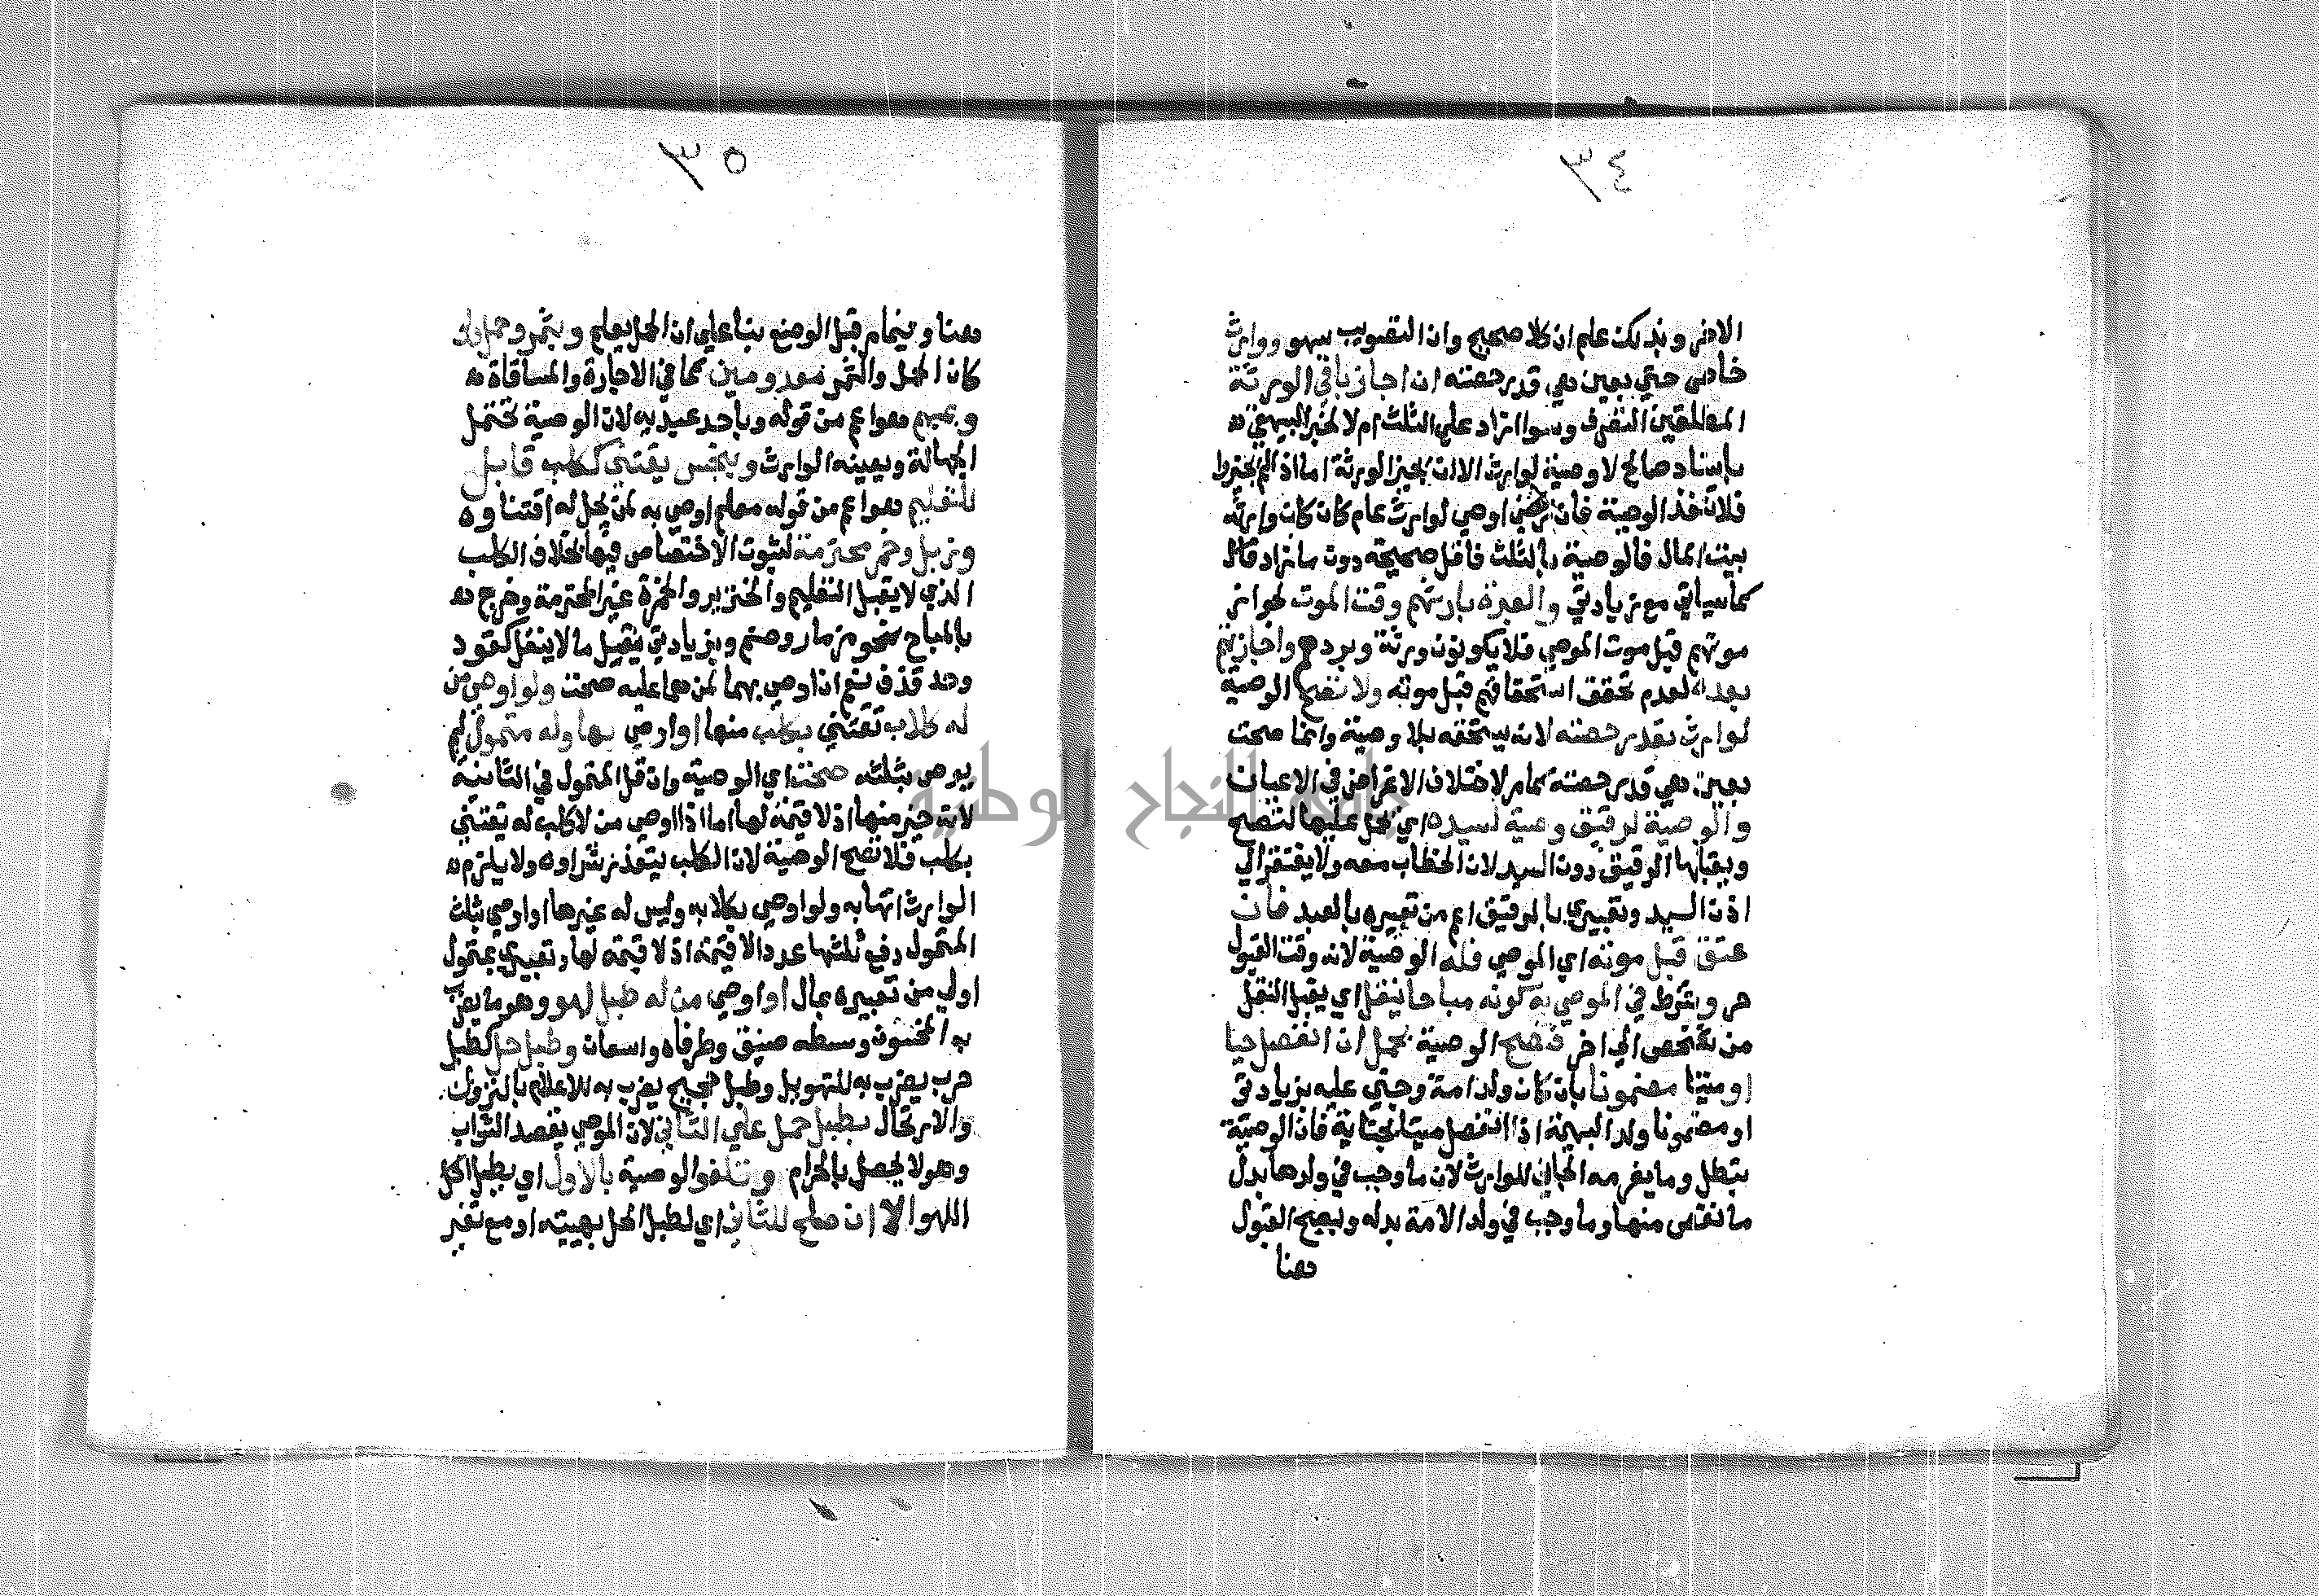 ٣٤
الاخر وبذلك علم ان كلا صحيح وان التصويب سهو ووارث
خاص حتي بعين هي قدر حصته ان اجاز باقي الورثة
المطلقين التصرف وسوا ازاد علي الثلث ام لا لخبر البيهقي
باسناد صالح لا وصية لوارث الا ان يجيز الورثة اما اذا لم يجيزوا
فلا تنفذ الوصية فان اوصي لوارث عام كان كان وارثه
بيت المال فالوصية بالثلث فاقل صحيحة دون ما زاد كما
كما سياتي مع زيادتي والعبرة بارثهم وقت الموت لجواز
موتهم قبل موت الموصي فلا يكونون ورثة وبردهم واجازتهم
بعده لعدم تحقق استحقاقهم قبل موته ولا تصح الوصية
لوارث بقدر حصته لانه يستحقه بلا وصية وانما صحت
بعين هي قدر حصته كما مر لاختلاف الاغراض في الاعيان
والوصية لرقيق وصية لسيده اي تحمل عليها لتصح
ويقبلها الرقيق دون السيد لان الخطاب معه ولا يفتقر الي
اذن السيد وتعبيري بالرقيق اعم من تعبيره بالعبد فان
عتق قبل موته اي الموصي فله الوصية لانه وقت القبول
حر وشرط في الموصي به كونه مباحا ينقل اي يقبل النقل
من شخص الي اخر فتصح الوصية بحمل ان انفصل حيا
او ميتا مضمونا بان كان ولد امة وجني عليه بزيادتي
او مضمونا ولد البهيمة اذا انفصل ميتا بجناية فان الوصية
تبطل وما يغرمه الجاني للوارث لان ما وجب في ولدها بدل
ما نقص منها وما وجب في ولد الامة بدله ويصح القبول
هنا
٣٥
هنا وفيما مر قبل الوضع بناء علي ان الحمل يعلم وبثمر وحمل ولو
كان الحمل والثمر معدومين كما في الاجارة والمساقاة
وبمبهم هو اعم من قوله وباحد عبديه لان الوصية تحتمل
الجهالة ويعينه الوارث وبنجس يقتني ككلب قابل
للتعليم هو اعم من قوله معلم اوصي به لمن يحل له اقتناوه
وزبل وخمر محترمة لثبوت الاختصاص فيها بخلاف الكلب
الذي لا يقبل التعليم والخنزير والخمرة غير المحترمة وخرج
بالمباح نحو مزمار وصنم وبزيادتي يقبل ما لا ينقل كقود
وحد قذف نعم ان اوصي بهما لمن هما عليه صحت ولو اوصي من
له كلاب تقتني بكلب منها او اوصي بها وله متمول لم
يوص بثلثه صحت اي الوصية وان قل المتمول في الثانية
لانه خير منها اذ لا قيمة لها اما اذا اوصي من لا كلب له يقتني
بكلب فلا تصح الوصية لان الكلب يتعذر شراوه ولا يلزم
الوارث اتهابه ولو اوصي بكلابه وليس له غيرها او اوصي بثلث
المتمول دفع ثلثها عددا لا قيمة اذ لا قيمة لها وتعبيري بمتمول
اولي من تعبيره بمال او اوصي من له طبل لهو وهو ما يضرب
به المخنثون وسطه ضيق وطرفاه واسعان وطبل حل كطبل
حرب يضرب به للتهويل وطبل حجيج يضرب به للاعلام بالنزول
والارتحال بطبل حمل علي الثاني لان الموصي يقصد الثواب
وهو لا يحصل بالحرام وتلغوا الوصية بالاول اي بطبل
اللهو الا ان صلح للثاني اي لطبل الحل بهيئته او مع تغير
جامعة النجاح الوطنية